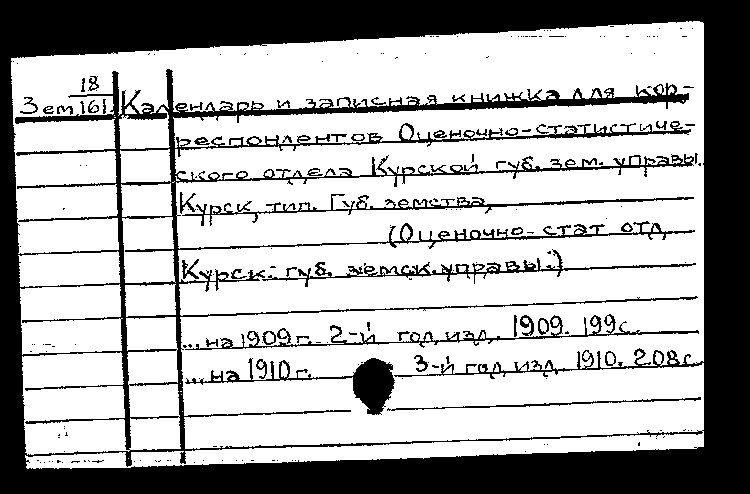 18
Зем.161. Календарь и записная книжка для кор-
респондентов Оценочно-статистиче-
ского отдела Курской губ. зем. управы.
Курск, тип. Губ. земства,
(Оценочно-стат отд.
Курск. губ. земск. управы.)
...на 1909г. 2-й год изд. 1909. 199с.
...на 1910г. 3-й год изд. 1910. 208с.